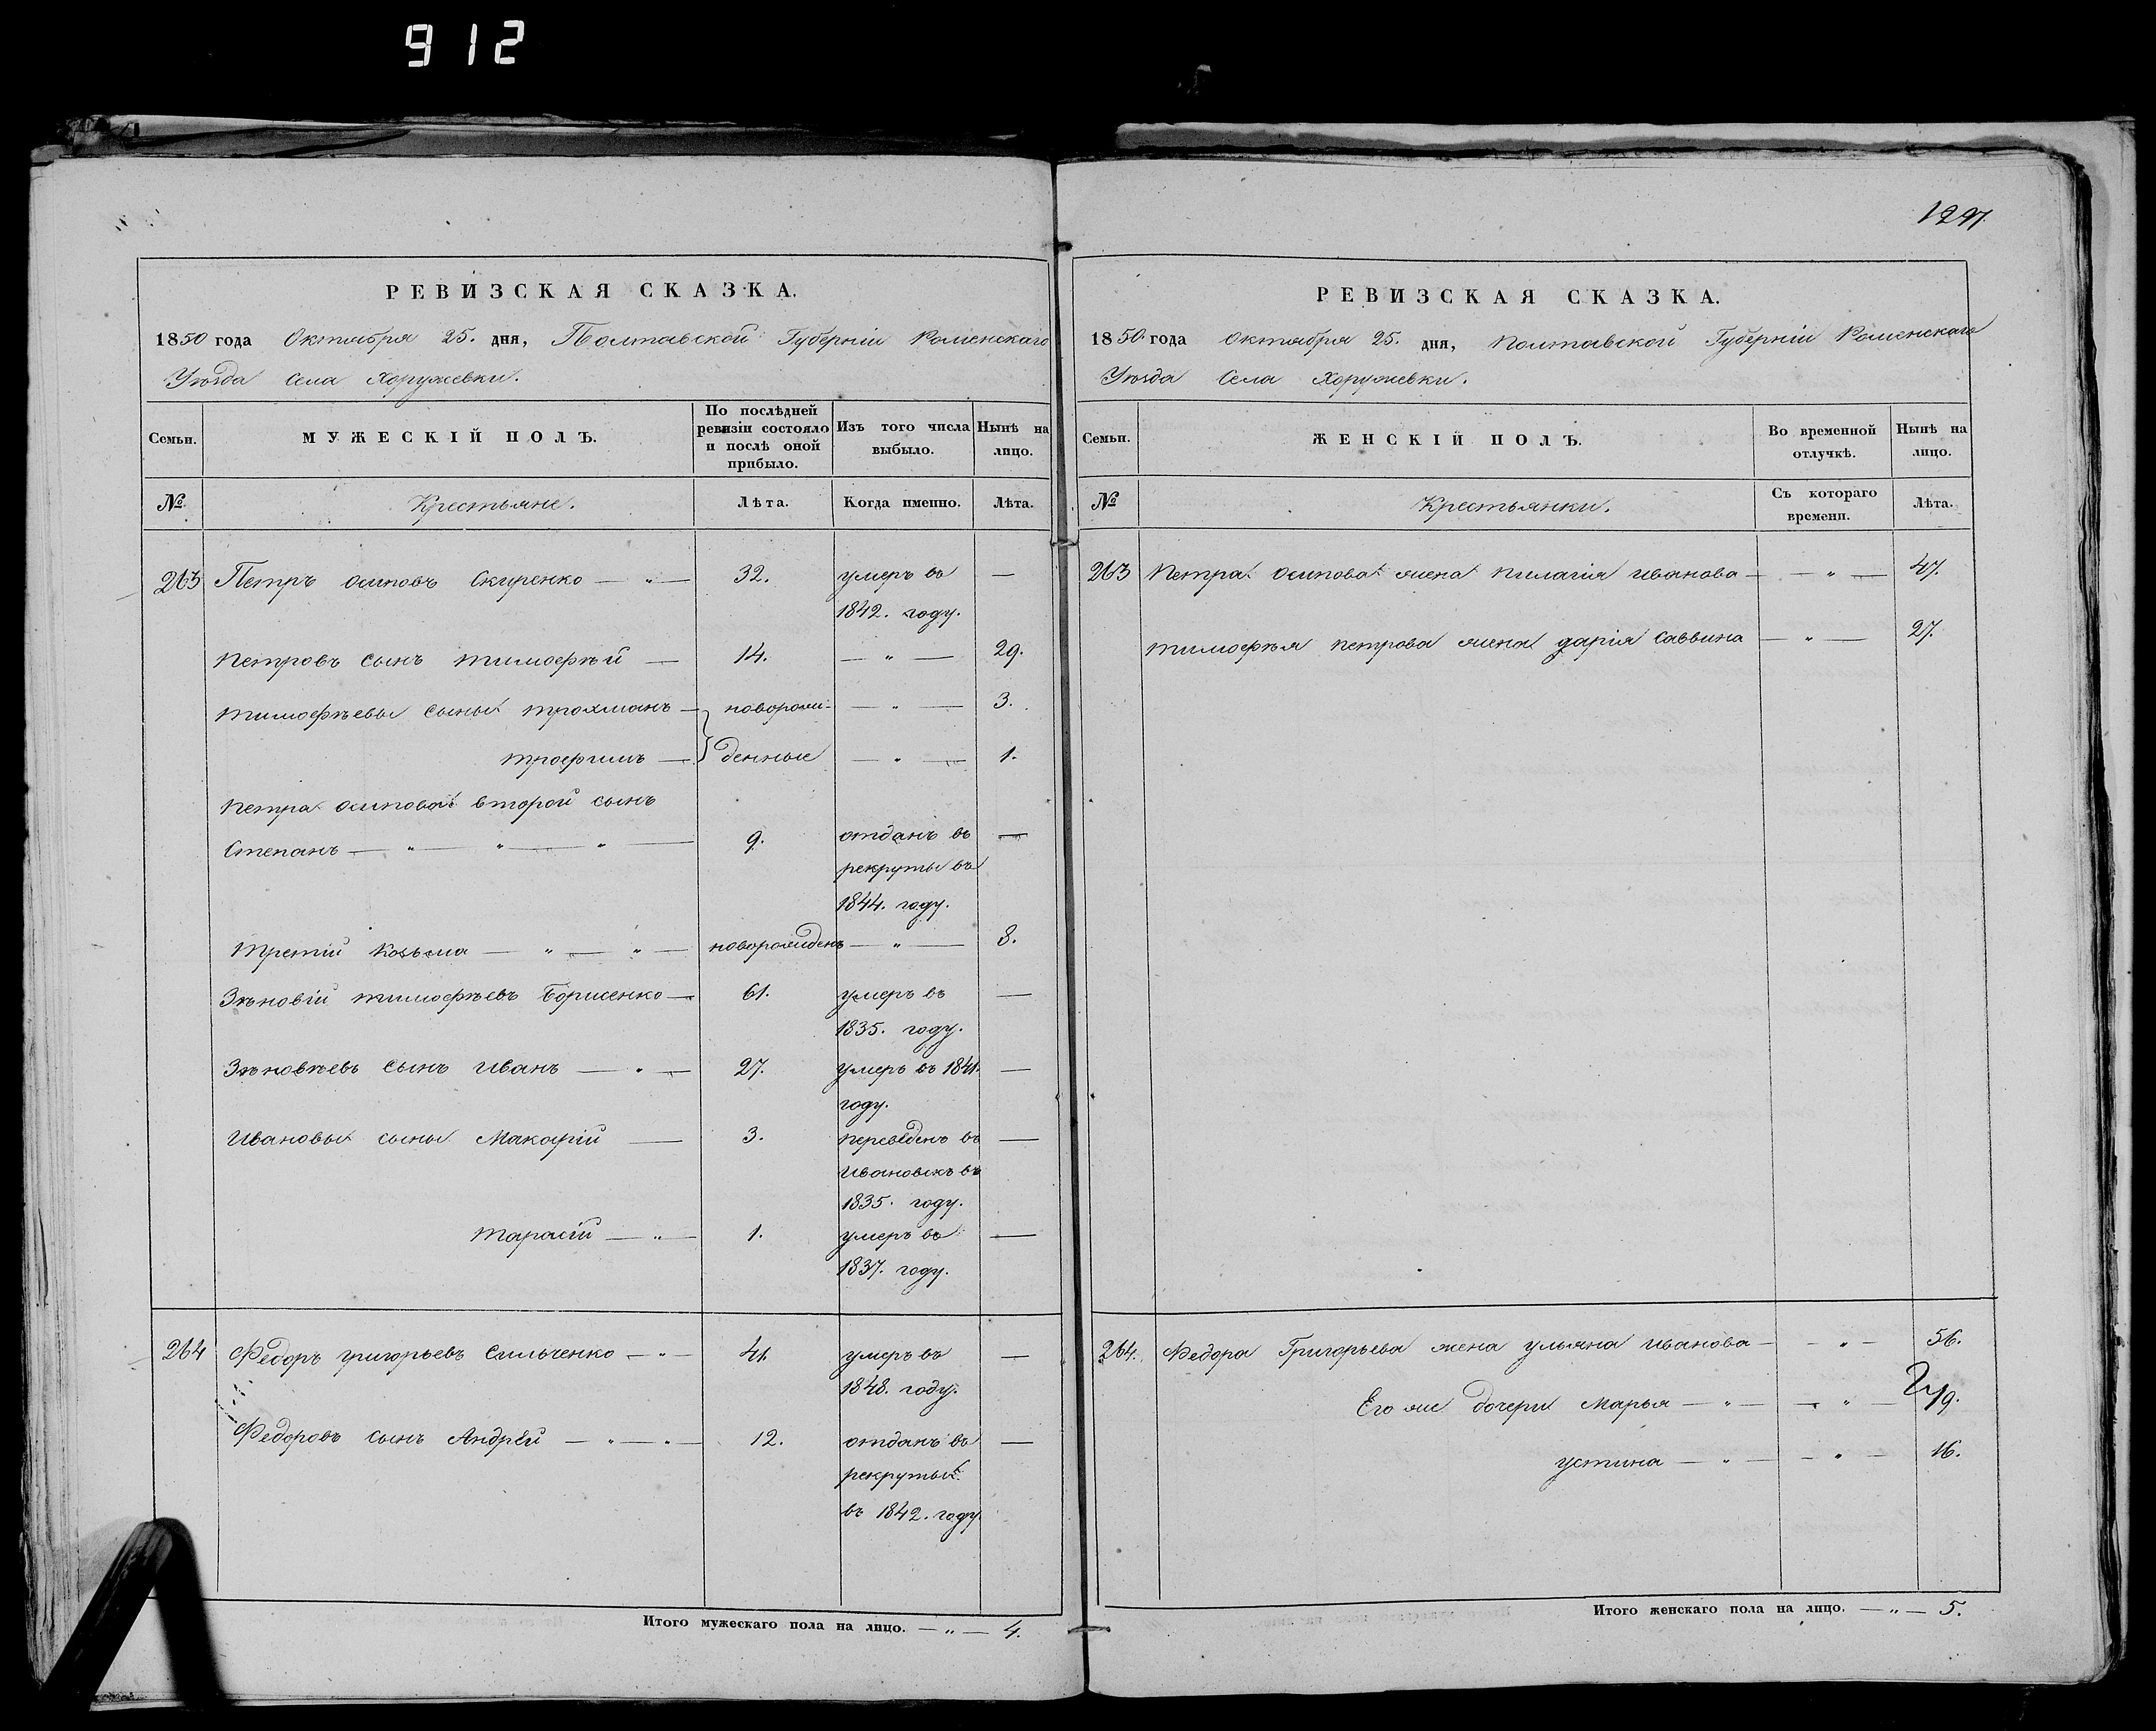 912
1297.
РЕВИЗСКАЯ СКАЗКА.
1850 года Октября 25. дня, Полтавской Губерніи Роменскаго
Уѣзда Села Хоружевки.
Семьи. МУЖЕСКІЙ ПОЛЪ. По послѣдней ревизіи состояло и послѣ оной прибыло. Изъ того числа выбыло. Нынѣ на лицо.
№ Крестьяне. Лѣта. Когда именно. Лѣта.
263 Петръ Осиповъ Скиренко — „ — 32. умеръ въ —
1842. году.
Петровъ сынъ Тимофѣй — 14. — „ — 29.
Тимофѣевы сыны Трохманъ — новорож- — „ — 3.
Трофимъ — денные — „ — 1.
Петра Осипова второй сынъ
Степанъ — „ — „ — „ — 9. отданъ въ —
рекруты въ
1844. году.
Третій Козьма — „ — „ — новорожденъ — „ — 8.
Зѣновій Тимофѣевъ Борисенко — 61. умеръ въ —
1835. году.
Зѣновѣевъ сынъ Иванъ — „ — 27. умеръ въ 1841. —
году.
Ивановы сыны Макарій — 3. переведенъ въ —
Ивановскъ въ
1835. году.
Тарасій — „ — 1. умеръ въ —
1837. году.
264 Федоръ Григорьевъ Сильченко — „ — 41. умеръ въ —
1848. году.
Федоровъ сынъ Андрей — „ — „ — 12. отданъ въ —
рекруты
въ 1842. году
Итого мужескаго пола на лицо. — „ — 4.
РЕВИЗСКАЯ СКАЗКА.
1850 года Октября 25. дня, Полтавской Губерніи Роменскаго
Уѣзда Села Хоружевки.
Семьи. ЖЕНСКІЙ ПОЛЪ. Во временной отлучкѣ. Нынѣ на лицо.
№ Крестьянки. Съ котораго времени. Лѣта.
263 Петра Осипова жена Пилагія Иванова — — „ — 47.
Тимофѣя Петрова жена Дарія Саввина — „ — 27.
264. Федора Григорьева жена Ульяна Иванова — — „ — 56.
Его же дочери Марья — „ — — „ — 19.
Устина — „ — — „ — 16.
Итого женскаго пола на лицо. — „ — 5.